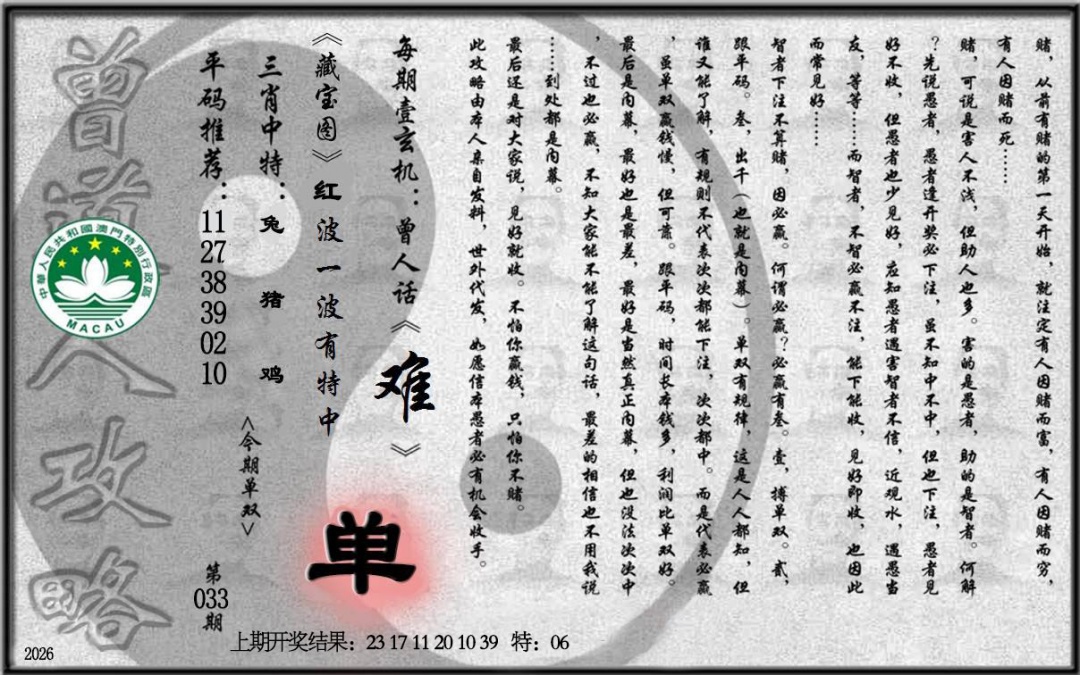 赌，从前有赌的第一天开始，就注定有人因赌而富，有人因赌而穷，
有人因赌而死……
赌，可说是害人不浅，但助人也多。害的是愚者，助的是智者。何解
？先说愚者，愚者逢开奖必下注，虽不知中不中，但也下注，愚者见
好不收，但愚者也少见好，应知愚者遇害智者不信，近观水，遇愚当
友，等等……而智者，不智必赢不注，能下能收，见好即收，也因此
而常见好……
智者下注不算赌，因必赢。何谓必赢？必赢有叁。壹，搏单双。贰，
跟单码。叁，出千（也就是内幕）。单双有规律，这是人人都知，但
谁又能了解，有规则不代表次次都能下注，次次都中。而是代表必赢
，虽单双赢钱慢，但可靠。跟单码，时间长本钱多，利润比单双好。
最后是内幕，最好也是最差，最好是当然真正内幕，但也没法次次中
，不过也必赢，不知大家能不能了解这句话，最差的相信也不用我说
……到处都是内幕。
最后还是对大家说，见好就收。不怕你赢钱，只怕你不赌。
此攻略由本人亲自发料，世外代发，如愿信本愚者必有机会收手。
每期壹玄机：曾人话《难》
《藏宝图》红波一波有特中
单
三肖中特：兔 猪 鸡
<今期单双>
平码推荐：11 27 38 39 02 10
第033期
曾道人攻略
中華人民共和國澳門特別行政區
MACAU
上期开奖结果：23 17 11 20 10 39 特：06
2026